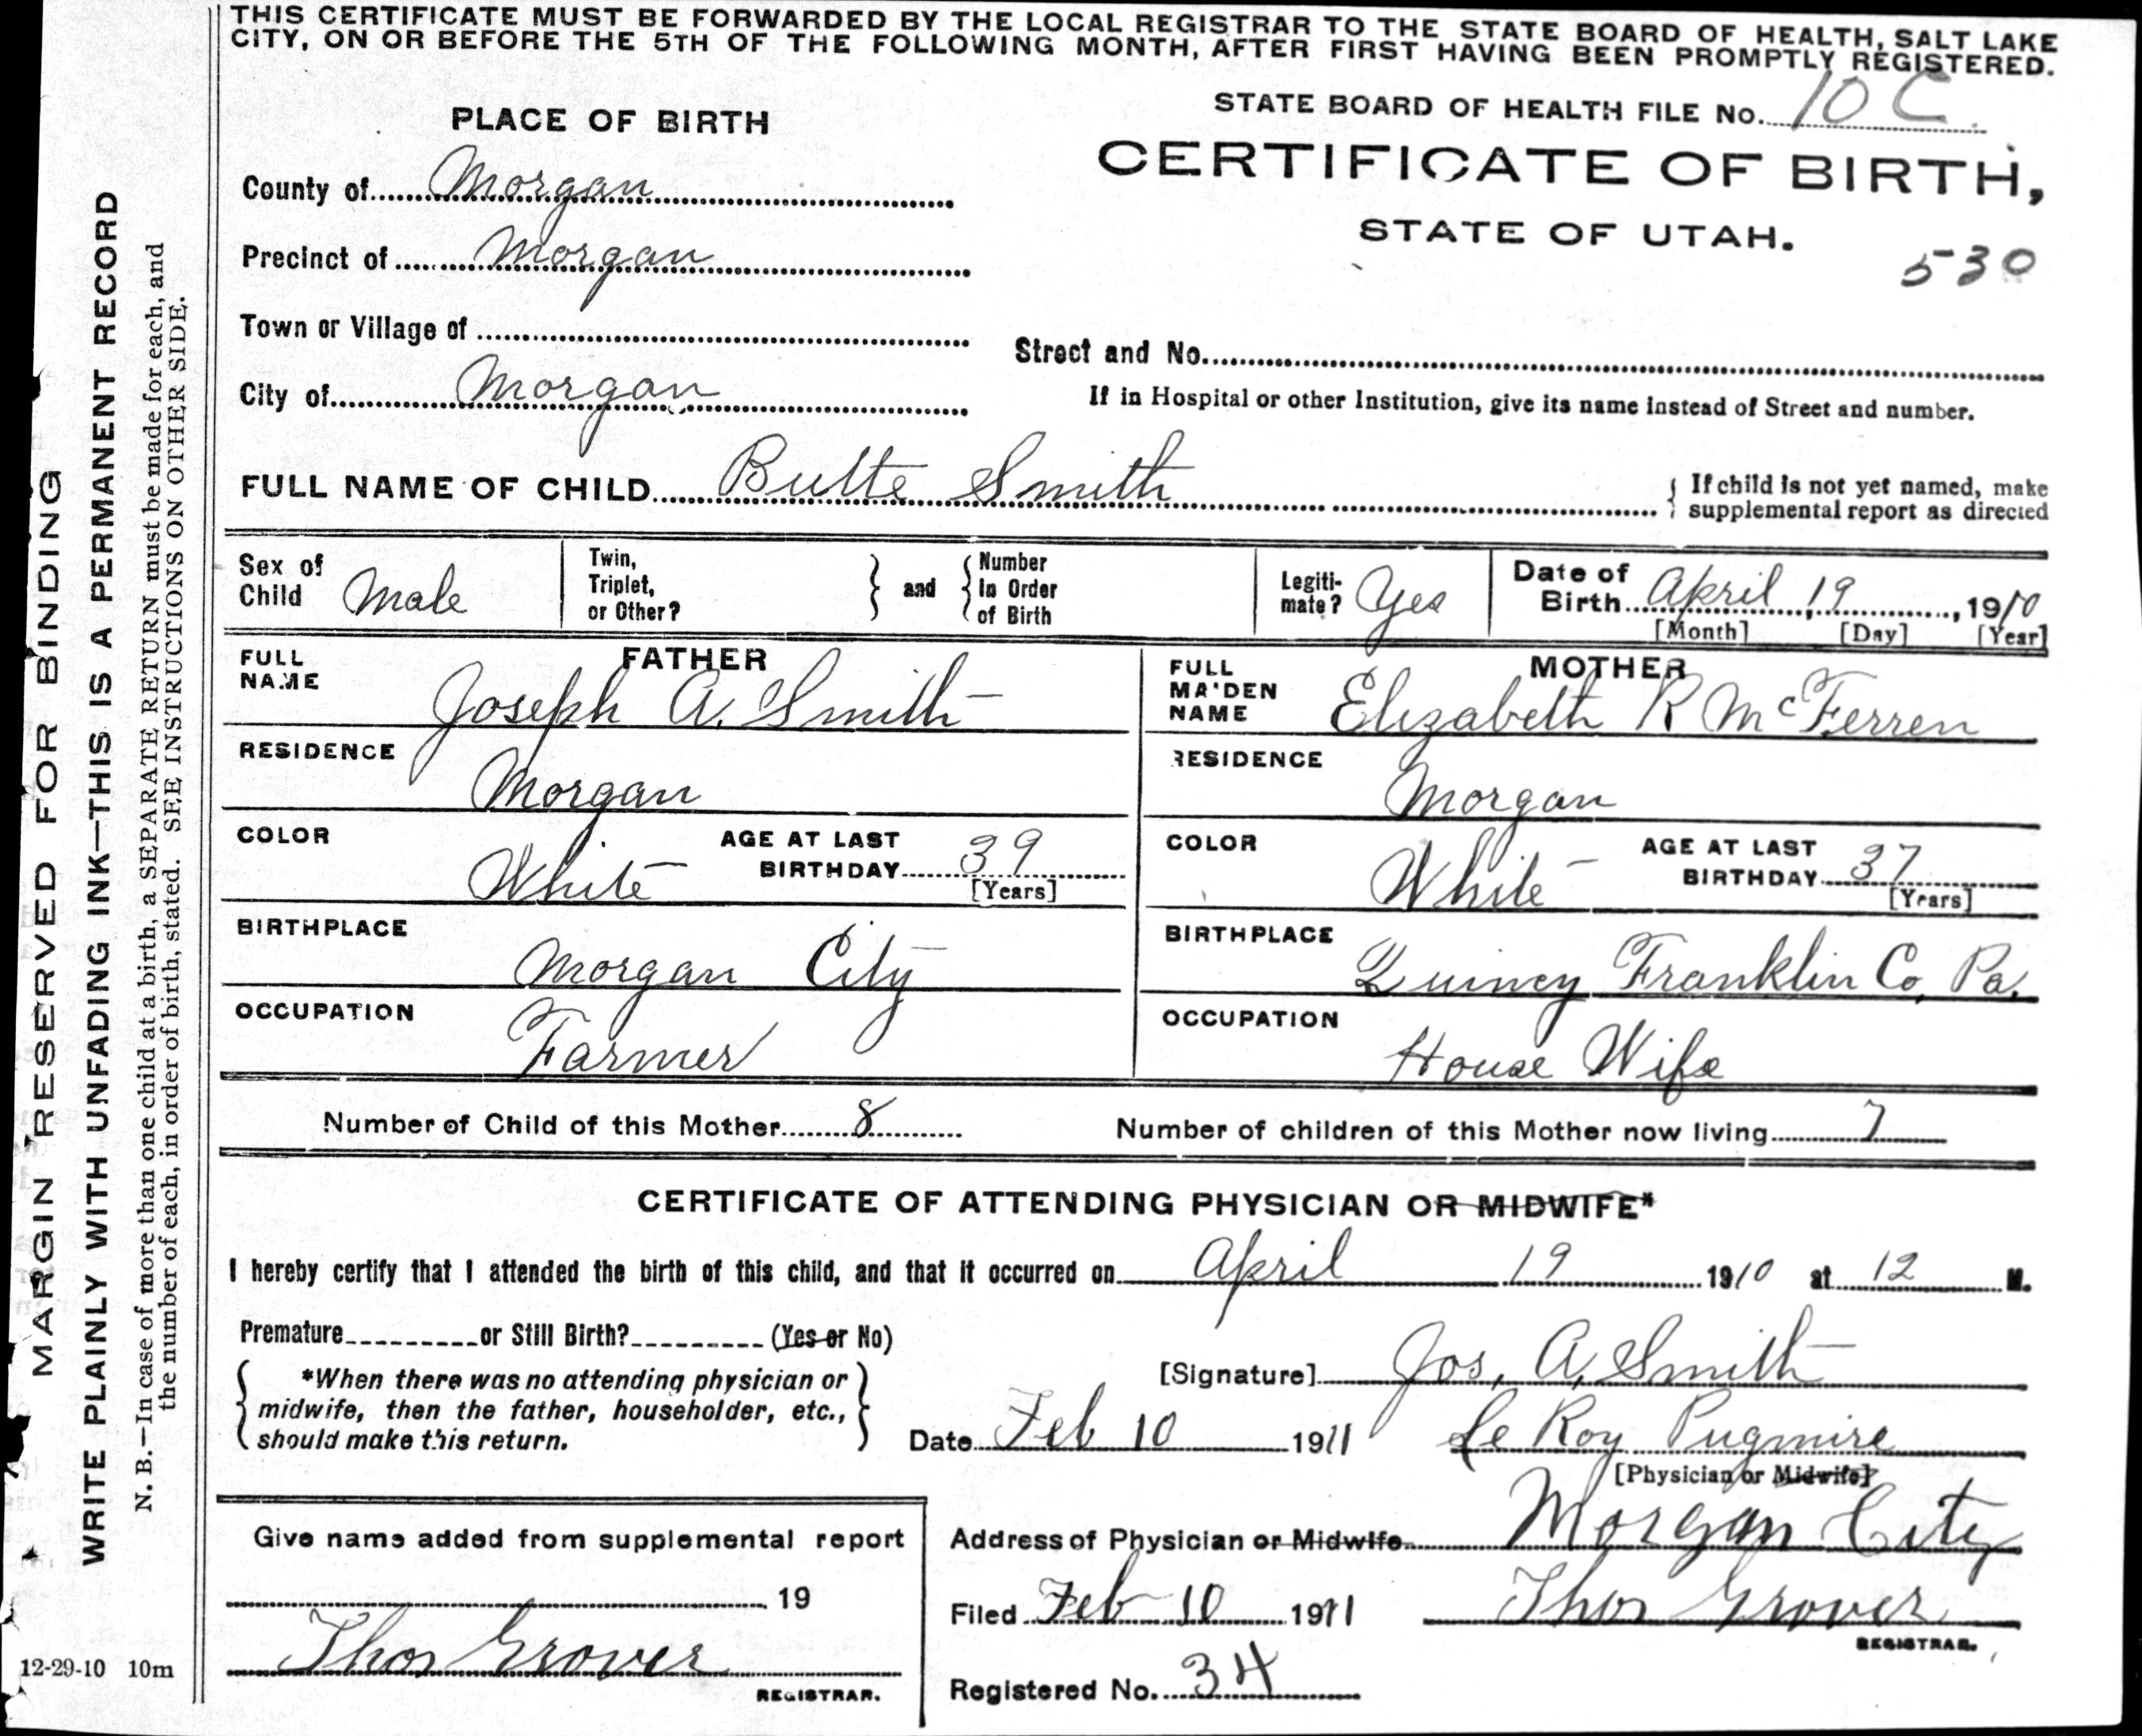 THIS CERTIFICATE MUST BE FORWARDED BY THE LOCAL REGISTRAR TO THE STATE BOARD OF HEALTH, SALT LAKE
CITY, ON OR BEFORE THE 5TH OF THE FOLLOWING MONTH, AFTER FIRST HAVING BEEN PROMPTLY REGISTERED.
STATE BOARD OF HEALTH FILE No. 10 C
PLACE OF BIRTH
CERTIFICATE OF BIRTH,
STATE OF UTAH.
530
County of Morgan
Precinct of Morgan
Town or Village of
Street and No.
City of Morgan
If in Hospital or other Institution, give its name instead of Street and number.
FULL NAME OF CHILD Butte Smith
If child is not yet named, make
supplemental report as directed
Sex of
Child Male
Twin,
Triplet,
or Other?
and
Number
In Order
of Birth
Legiti-
mate? Yes
Date of
Birth April 19, 1910
[Month] [Day] [Year]
FATHER
FULL
NAME
Joseph A. Smith
RESIDENCE
Morgan
COLOR
White
AGE AT LAST
BIRTHDAY 39
[Years]
BIRTHPLACE
Morgan City
OCCUPATION
Farmer
MOTHER
FULL
MAIDEN
NAME
Elizabeth R McFerren
RESIDENCE
Morgan
COLOR
White
AGE AT LAST
BIRTHDAY 37
[Years]
BIRTHPLACE
Quincy Franklin Co, Pa.
OCCUPATION
House Wife
Number of Child of this Mother 8
Number of children of this Mother now living 7
CERTIFICATE OF ATTENDING PHYSICIAN OR MIDWIFE*
I hereby certify that I attended the birth of this child, and that it occurred on April 19 1910 at 12 M.
Premature or Still Birth? (Yes or No)
*When there was no attending physician or
midwife, then the father, householder, etc.,
should make this return.
[Signature] Jos. A. Smith
Date Feb 10 1911 Le Roy Pugmire
[Physician or Midwife]
Address of Physician or Midwife Morgan City
Filed Feb 10 1911 Thos Grover
REGISTRAR.
Registered No. 34
Give name added from supplemental report
19
Thos Grover
REGISTRAR.
12-29-10 10m
MARGIN RESERVED FOR BINDING
WRITE PLAINLY WITH UNFADING INK—THIS IS A PERMANENT RECORD
N. B.—In case of more than one child at a birth, a SEPARATE RETURN must be made for each, and
the number of each, in order of birth, stated. SEE INSTRUCTIONS ON OTHER SIDE.